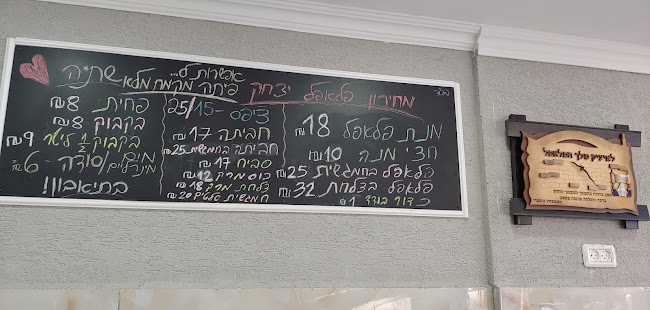 בס"ד
מחירון פלאפל יצחק
מנת פלאפל 18 ₪
חצי מנה 10 ₪
פלאפל בחמגשית 25 ₪
פלאפל בצלחת 32 ₪
כדור בודד 1 ₪
אפשרות ל...
פיתה מקמח מלא
ציפס - 25/15
חביתה 17 ₪
חביתה בחמגשית 25 ₪
סביח 17 ₪
כוס מרק 12 ₪
צלחת מרק 18 ₪
חמגשית סלטים 20 ₪
שתיה
פחית 8 ₪
בקבוק 8 ₪
בקבוק 1/2 ליטר 9 ₪
מים/סודה - 6 ₪
מינרלים
בתיאבון!!
לאיציק מלך הפלאפל